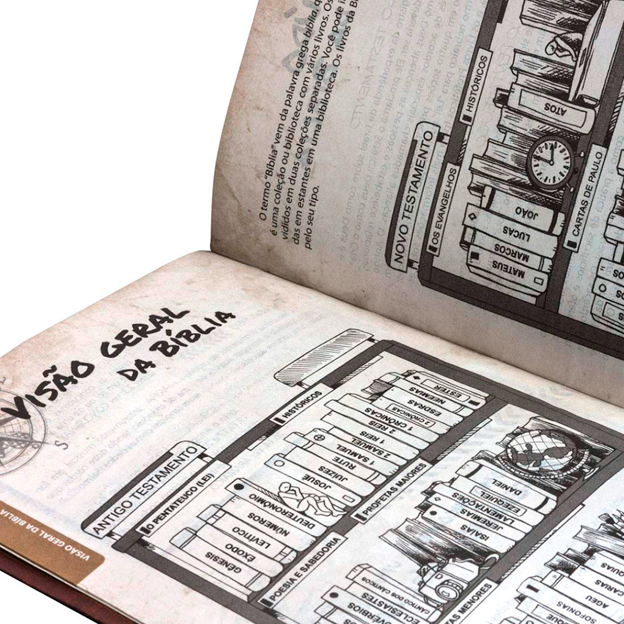 VISÃO GERAL
DA BÍBLIA
VISÃO GERAL DA BÍBLIA
S
ANTIGO TESTAMENTO
O PENTATEUCO (LEI)
GÊNESIS
ÊXODO
LEVÍTICO
NÚMEROS
DEUTERONÔMIO
HISTÓRICOS
JOSUÉ
JUÍZES
RUTE
1 SAMUEL
2 SAMUEL
1 REIS
2 REIS
1 CRÔNICAS
2 CRÔNICAS
ESDRAS
NEEMIAS
ESTER
POESIA E SABEDORIA
PROVÉRBIOS
ECLESIASTES
CÂNTICO DOS CÂNTICOS
PROFETAS MAIORES
ISAÍAS
JEREMIAS
LAMENTAÇÕES
EZEQUIEL
DANIEL
MENORES
SOFONIAS
AGEU
O termo "Bíblia" vem da palavra grega biblio,
é uma coleção ou biblioteca com vários livros. Os
vididos em duas coleções separadas. Você pode
das em estantes em uma biblioteca. Os livros da
pelo seu tipo.
NOVO TESTAMENTO
OS EVANGELHOS
MATEUS
MARCOS
LUCAS
JOÃO
HISTÓRICOS
ATOS
CARTAS DE PAULO